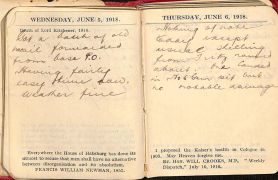 WEDNESDAY, JUNE 5, 1918.
Death of Lord Kitchener, 1916.
Got a batch of old
mail forwarded
from base P.O.
Having fairly
easy time now.
weather fine
Everywhere the House of Habsburg has done its
utmost to secure that men shall have no alternative
between disorganisation and no absolutism.
FRANCIS WILLIAM NEWMAN, 1851.
THURSDAY, JUNE 6, 1918.
Nothing of note
today except
usual shelling
from
about. One landed
in our but
no notable damage
I proposed the Kaiser's health in Cologne in
1909. May Heaven forgive me.
RT. HON. WILL CROOKS, M.P., "Weekly
Dispatch," July 16, 1916.